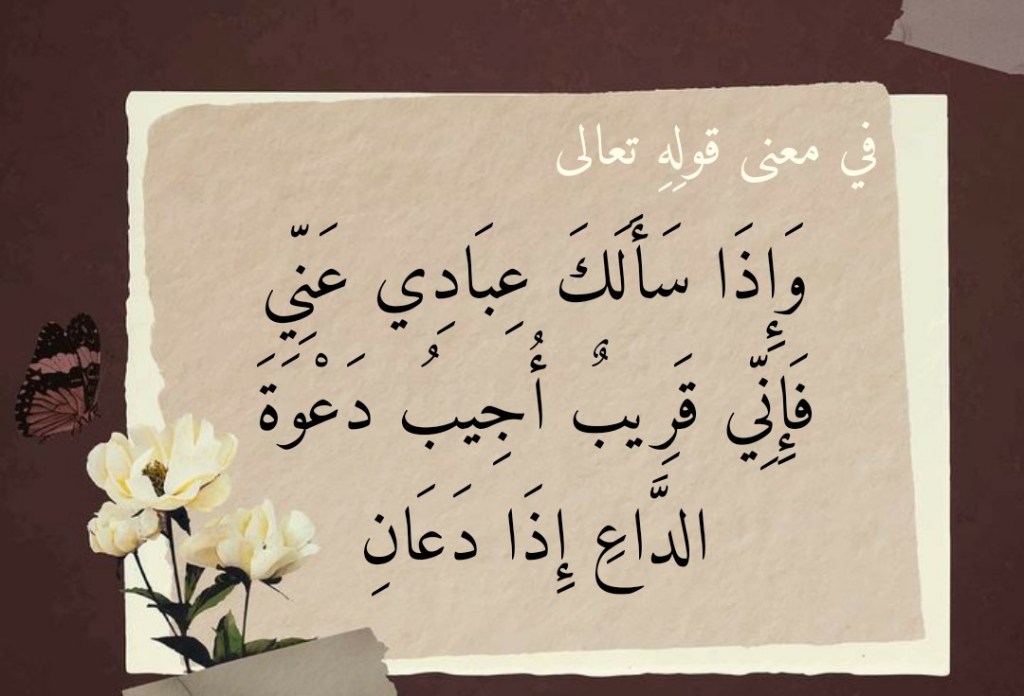 في معنى قولِهِ تعالى
وَإِذَا سَأَلَكَ عِبَادِي عَنِّي
فَإِنِّي قَرِيبٌ أُجِيبُ دَعْوَةَ
الدَّاعِ إِذَا دَعَانِ